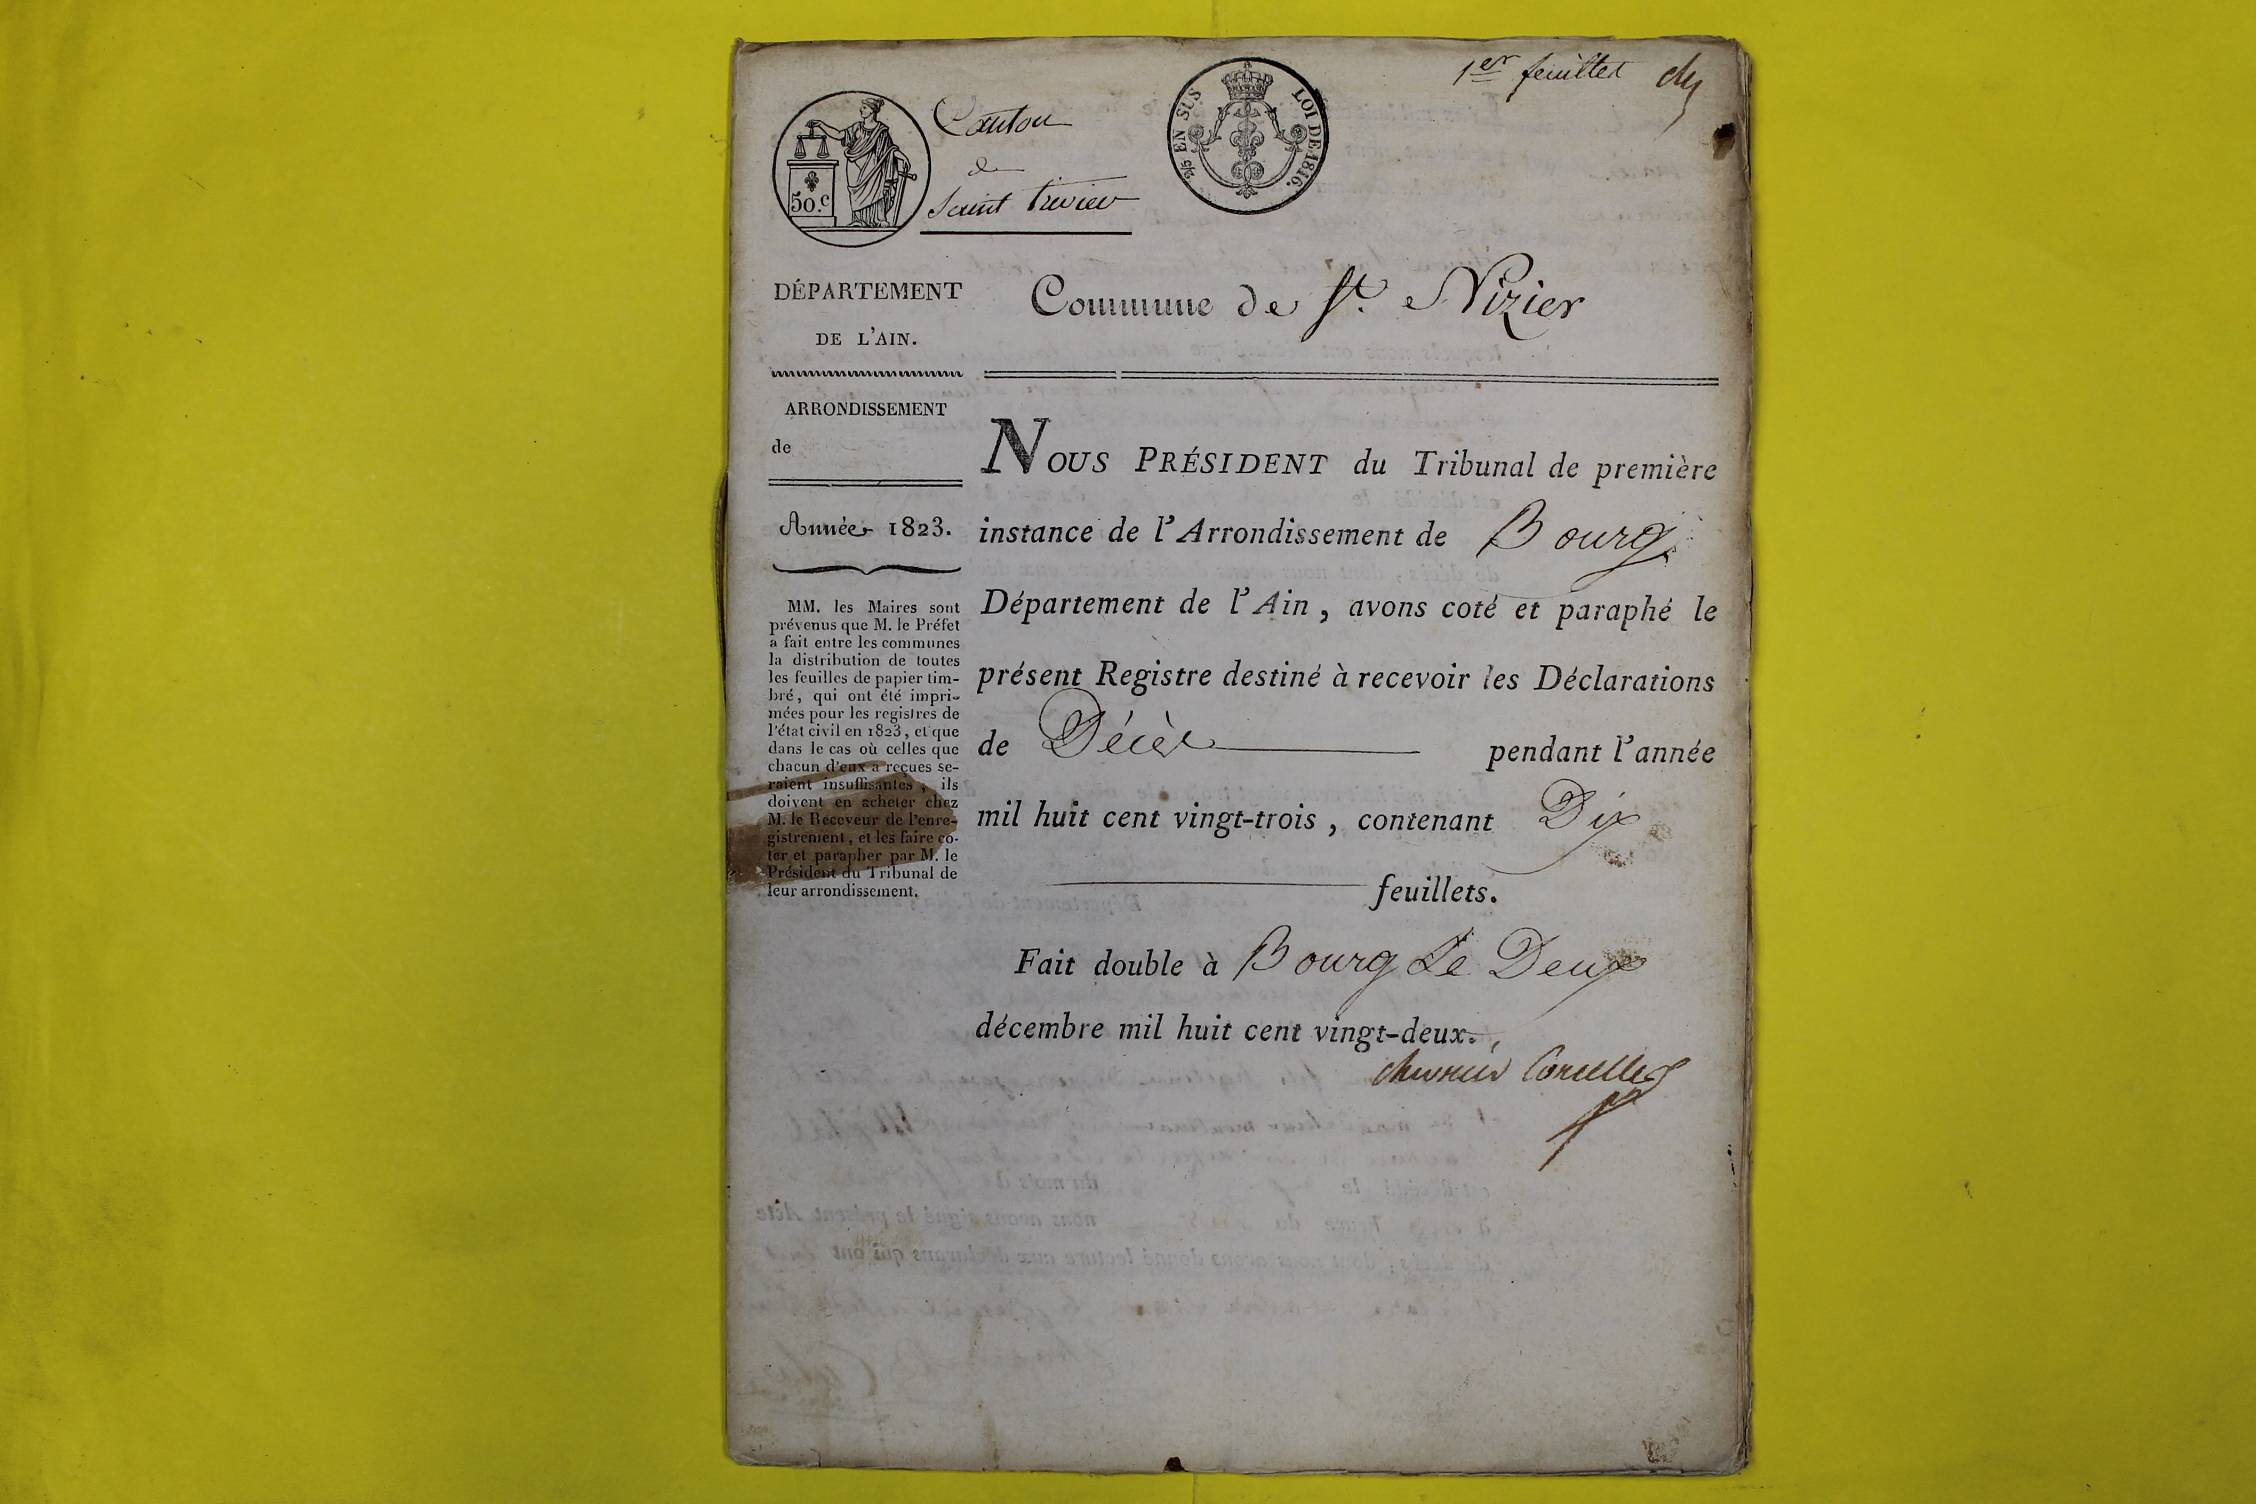 1er feuillet
Canton
de
Saint Trivier
50.c
2/5 EN SUS
LOI DE 1816.
DÉPARTEMENT
DE L'AIN.
Commune de St. Nizier
ARRONDISSEMENT
de
Année 1823.
MM. les Maires sont
prévenus que M. le Préfet
a fait entre les communes
la distribution de toutes
les feuilles de papier tim-
bré, qui ont été impri-
mées pour les registres de
l'état civil en 1823, et que
dans le cas où celles que
chacun d'eux a reçues se-
raient insuffisantes, ils
doivent en acheter chez
M. le Receveur de l'enre-
gistrement, et les faire co-
ter et parapher par M. le
Président du Tribunal de
leur arrondissement.
NOUS PRÉSIDENT du Tribunal de première
instance de l'Arrondissement de Bourg
Département de l'Ain, avons coté et paraphé le
présent Registre destiné à recevoir les Déclarations
de Décès pendant l'année
mil huit cent vingt-trois, contenant Dix
feuillets.
Fait double à Bourg Le Deux
décembre mil huit cent vingt-deux.